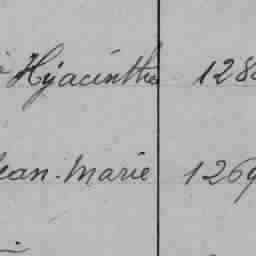 Hyacinthe 128
Jean-Marie 1269